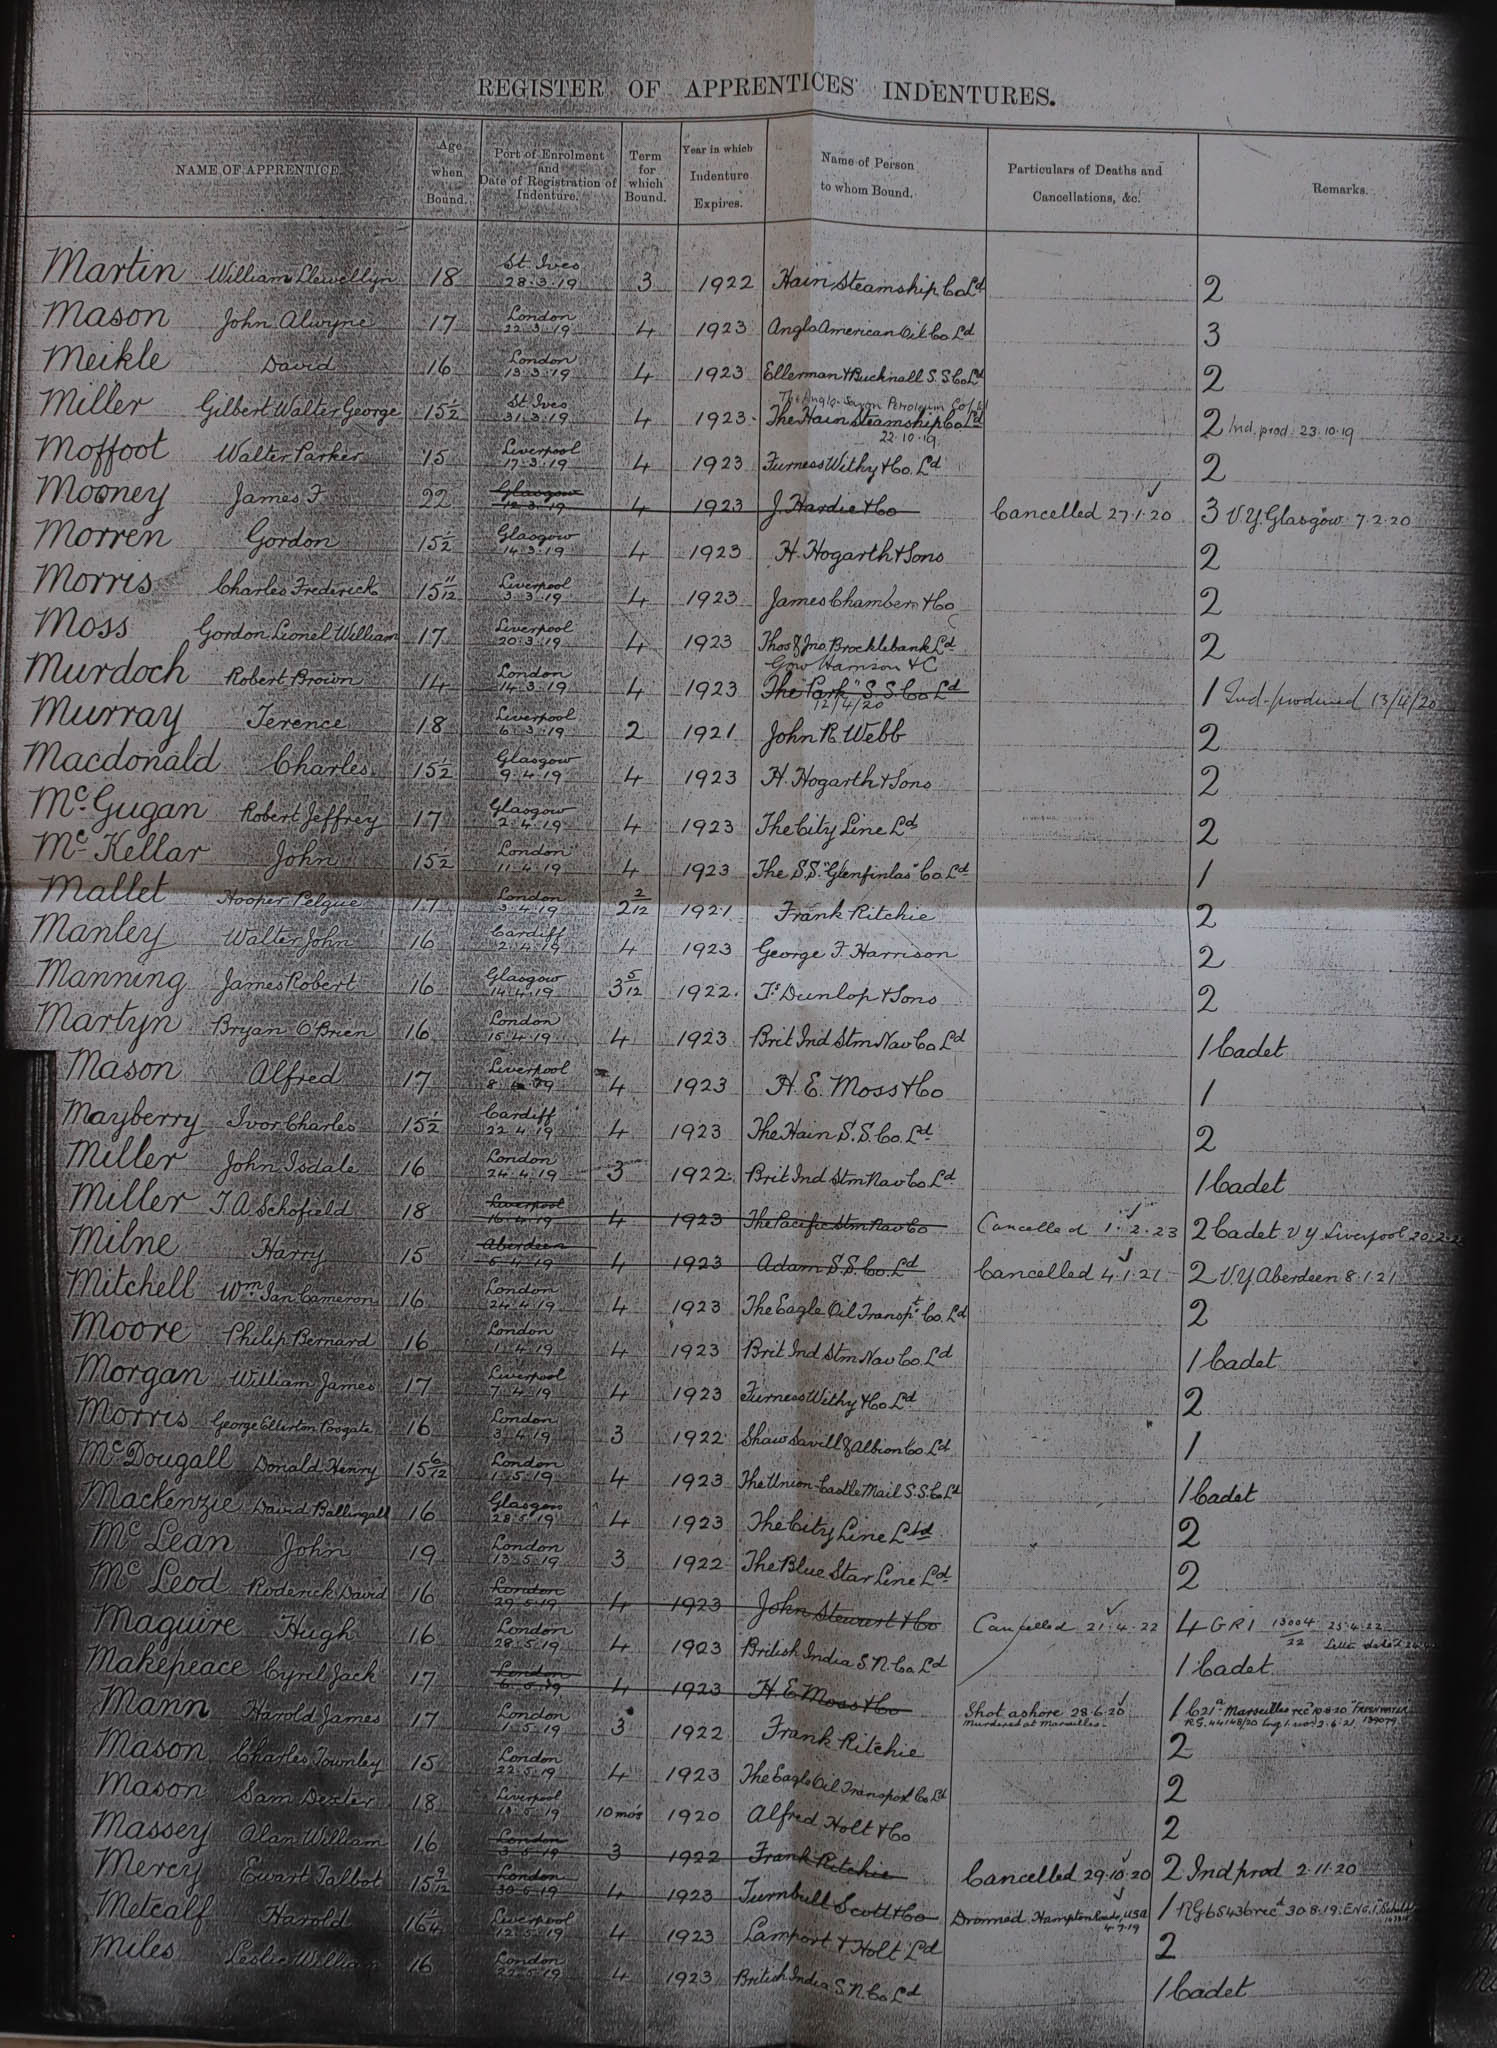 REGISTER OF APPRENTICES' INDENTURES.
NAME OF APPRENTICE. Age when Bound. Port of Enrolment and Date of Registration of Indenture. Term for which Bound. Year in which Indenture Expires. Name of Person to whom Bound. Particulars of Deaths and Cancellations, &c. Remarks.
Martin William Llewellyn 18 St. Ives 28.3.19 3 1922 Hain Steamship Co Ld 2
Mason John Alwyne 17 London 22.3.19 4 1923 Anglo American Oil Co Ld 3
Meikle David 16 London 13.3.19 4 1923 Ellerman & Bucknall S.S. Co Ld 2
Miller Gilbert Walter George 15 1/2 St Ives 31.3.19 4 1923 The Anglo-Saxon Petroleum Co Ld The Hain Steamship Co Ld 22.10.19 2 Ind. prod. 23.10.19
Moffoot Walter Parker 15 Liverpool 17.3.19 4 1923 Furness Withy & Co. Ld 2
Mooney James F 22 Glasgow 12.3.19 4 1923 J. Hardie & Co Cancelled 27.1.20 3 V.Y Glasgow 7.2.20
Morren Gordon 15 1/2 Glasgow 14.3.19 4 1923 H. Hogarth & Sons 2
Morris Charles Frederick 15 11/12 Liverpool 3.3.19 4 1923 James Chambers & Co 2
Moss Gordon Lionel William 17 Liverpool 20.3.19 4 1923 Thos & Jno. Brocklebank Ld 2
Murdoch Robert Brown 14 London 14.3.19 4 1923 Gow Harrison & C The "Park" S.S. Co Ld 12/4/20 1 Ind. produced 13/4/20
Murray Terence 18 Liverpool 6.3.19 2 1921 John R. Webb 2
Macdonald Charles 15 1/2 Glasgow 9.4.19 4 1923 H. Hogarth & Sons 2
Mc Gugan Robert Jeffrey 17 Glasgow 2.4.19 4 1923 The City Line Ld 2
Mc Kellar John 15 1/2 London 11.4.19 4 1923 The S.S. "Glenfinlas" Co. Ld 1
Mallet Hooper Pelgue 17 London 3.4.19 2 2/12 1921 Frank Ritchie 2
Manley Walter John 16 Cardiff 2.4.19 4 1923 George F. Harrison 2
Manning James Robert 16 Glasgow 14.4.19 3 5/12 1922. Ts Dunlop & Sons 2
Martyn Bryan O'Brien 16 London 15.4.19 4 1923 Brit Ind Stm Nav Co Ld 1 Cadet
Mason Alfred 17 Liverpool 8.4.19 4 1923 H. E. Moss & Co 1
Mayberry Ivor Charles 15 1/2 Cardiff 22.4.19 4 1923 The Hain S.S. Co. Ld 2
Miller John Isdale 16 London 24.4.19 3 1922. Brit Ind Stm Nav Co Ld 1 Cadet
Miller T A Schofield 18 Liverpool 16.4.19 4 1923 The Pacific Stm Nav Co Cancelled 1.2.23 2 Cadet V Y Liverpool
Milne Harry 15 Aberdeen 5.4.19 4 1923 Adam S.S. Co. Ld Cancelled 4.1.21 2 V.Y Aberdeen 8.1.21
Mitchell Wm Ian Cameron 16 London 24.4.19 4 1923 The Eagle Oil Transpt Co. Ld 2
Moore Philip Bernard 16 London 1.4.19 4 1923 Brit Ind Stm Nav Co. Ld 1 Cadet
Morgan William James 17 Liverpool 7.4.19 4 1923 Furness Withy & Co Ld 2
Morris George Ellerton Posgate 16 London 3.4.19 3 1922 Shaw Savill & Albion Co. Ld 1
Mc Dougall Donald Henry 15 6/12 London 1.5.19 4 1923 The Union-Castle Mail S.S. Co Ld 1 Cadet
Mackenzie David Ballingall 16 Glasgow 28.5.19 4 1923 The City Line Ltd 2
Mc Lean John 19 London 13.5.19 3 1922 The Blue Star Line Ld 2
Mc Leod Roderick David 16 London 29.5.19 4 1923 John Stewart & Co Cancelled 21.4.22 4 GRI 13004/22 25.4.22
Maguire Hugh 16 London 28.5.19 4 1923 British India S.N. Co. Ld 1 Cadet
Makepeace Cyril Jack 17 London 6.5.19 4 1923 H. E. Moss & Co Shot ashore 28.6.20 Murdered at Marseilles. 1 C21a Marseilles recd 10.8.20
Mann Harold James 17 London 1.5.19 3 1922 Frank Ritchie 2
Mason Charles Townley 15 London 22.5.19 4 1923 The Eagle Oil Transport Co Ld 2
Mason Sam Dexter 18 Liverpool 19.5.19 10 mos 1920 Alfred Holt & Co 2
Massey Alan William 16 London 3.5.19 3 1922 Frank Ritchie Cancelled 29.10.20 2 Ind prod 2.11.20
Mercy Ewart Talbot 15 9/12 London 30.5.19 4 1923 Turnbull Scott & Co Drowned Hampton Roads, USA 4.7.19 1 RG 65436 recd 30.8.19. ENG.1
Metcalf Harold 16 1/4 Liverpool 12.5.19 4 1923 Lamport & Holt Ld 2
Miles Leslie William 16 London 22.5.19 4 1923 British India S.N. Co Ld 1 Cadet